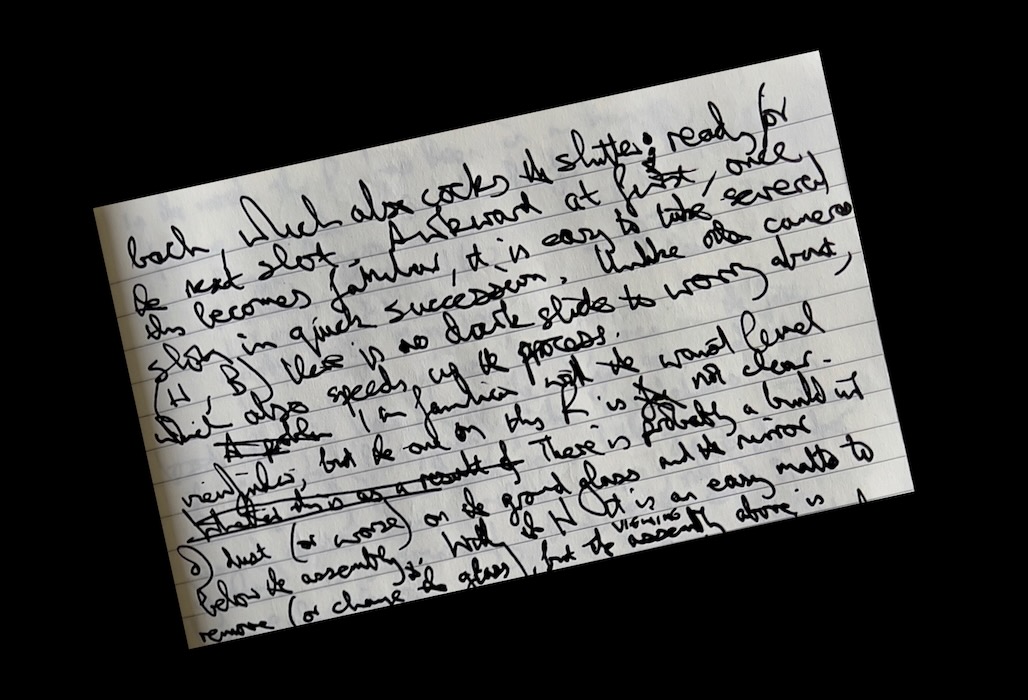 back, which also cocks the shutter; ready for
the next shot. Awkward at first, once
this becomes familiar, it is easy to take several
shots in quick succession. Unlike other cameras
(H, B) there is no dark slide to worry about,
which also speeds up the process.
I am familiar with the waist level
viewfinder, but the one on this R is not clear.
What this is as a result of There is probably a build up
of dust (or worse) on the ground glass and the mirror
below the assembly. With the H it is an easy matter to
remove (or change the glass), but the VIEWING assembly above is